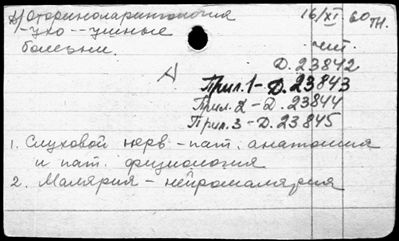 Оториноларингология 16/XI 60
-ухо--ушные
болезни. чит.
А Д. 23842
Прил. 1-Д. 23843
Прил. 2-Д. 23844
Прил. 3-Д. 23845
1. Слуховой нерв.-пат. анатомия
и пат. физиология
2. Малярия-нейромалярия